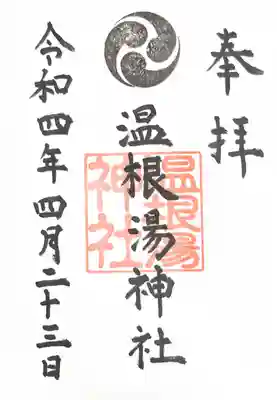 奉拝
温根湯神社
温根湯
神社
令和四年四月二十三日